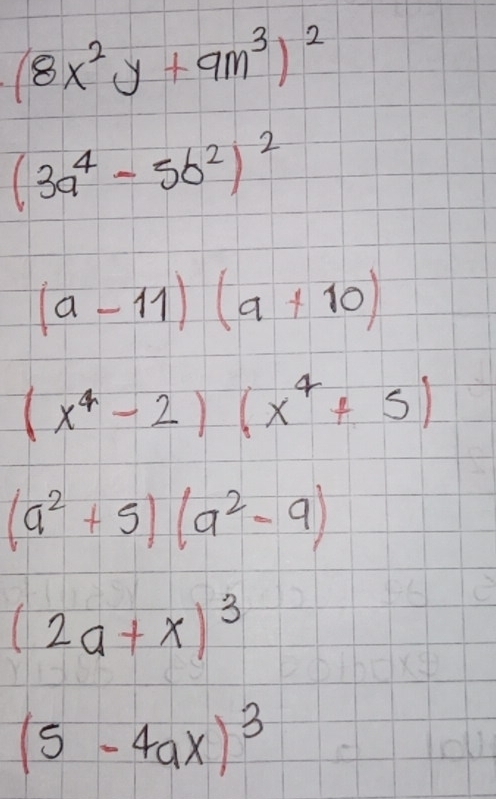 (8x²y + 9m³)²
(3a⁴ - 5b²)²
(a - 11) (a + 10)
(x⁴ - 2) (x⁴ + 5)
(a² + 5) (a² - 9)
(2a + x)³
(5 - 4ax)³